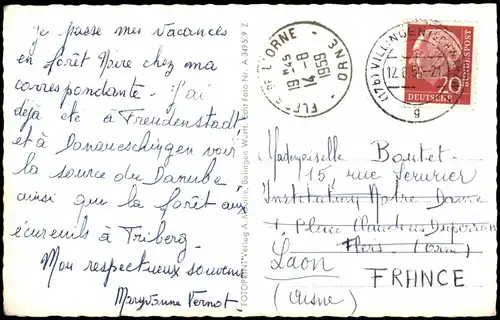 Je passe mes vacances
en forêt Noire chez ma
correspondante. J'ai
déjà été à Freudenstadt
et à Donaueschingen voir
la source du Danube,
ainsi que la forêt aux
écureuils à Triberg.
Mon respectueux souvenir
Maryvonne Vernot.
FOTOPRINT Verlag A. Balingen Württ. Echt Foto Nr. A 349 S/9 Z
FLERS DE L'ORNE - ORNE
19H45
14-8
1955
(17b) VILLINGEN
12.8.55-21
g
DEUTSCHE BUNDESPOST
20
Mademoiselle Boutet
15, rue Serurier
Institution Notre Dame
1 Place Claudius Duperron
Flers (Orne)
Laon
FRANCE
(Aisne)